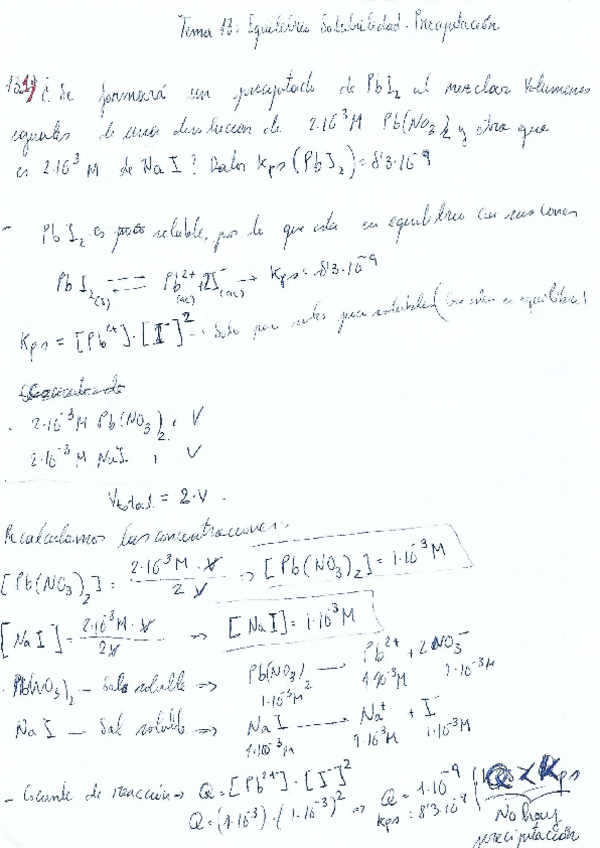 Tema 13: Equilibrio Solubilidad - Precipitación
13.1) ¿Se formará un precipitado de PbI2 al mezclar volúmenes
iguales de una disolución de 2·10^-3 M Pb(NO3)2 y otra que
es 2·10^-3 M de NaI? Dator Kps (PbI2) = 8'3·10^-9
- PbI2 es poco soluble, por lo que esta en equilibrio con sus iones
PbI2(s) ⇌ Pb2+(ac) + 2I-(ac) → Kps = 8'3·10^-9
Kps = [Pb2+]·[I-]^2 - Solo para sales poco solubles (
2·10^-3 M Pb(NO3)2, V
2·10^-3 M NaI , V
Vtotal = 2·V
Recalculamos las concentraciones:
[Pb(NO3)2] = 2·10^-3 M · V / 2V ⇒ [Pb(NO3)2] = 1·10^-3 M
[NaI] = 2·10^-3 M · V / 2V ⇒ [NaI] = 1·10^-3 M
· Pb(NO3)2 - Sal soluble ⇒ Pb(NO3)2 → Pb2+ + 2NO3-
1·10^-3 M 1·10^-3 M 1·10^-3 M
NaI - Sal soluble ⇒ NaI → Na+ + I-
1·10^-3 M 1·10^-3 M 1·10^-3 M
- Cociente de reacción → Q = [Pb2+]·[I-]^2
Q = (1·10^-3)·(1·10^-3)^2 ⇒ Q = 1·10^-9
Kps = 8'3·10^-9
Q < Kps
No hay
precipitación